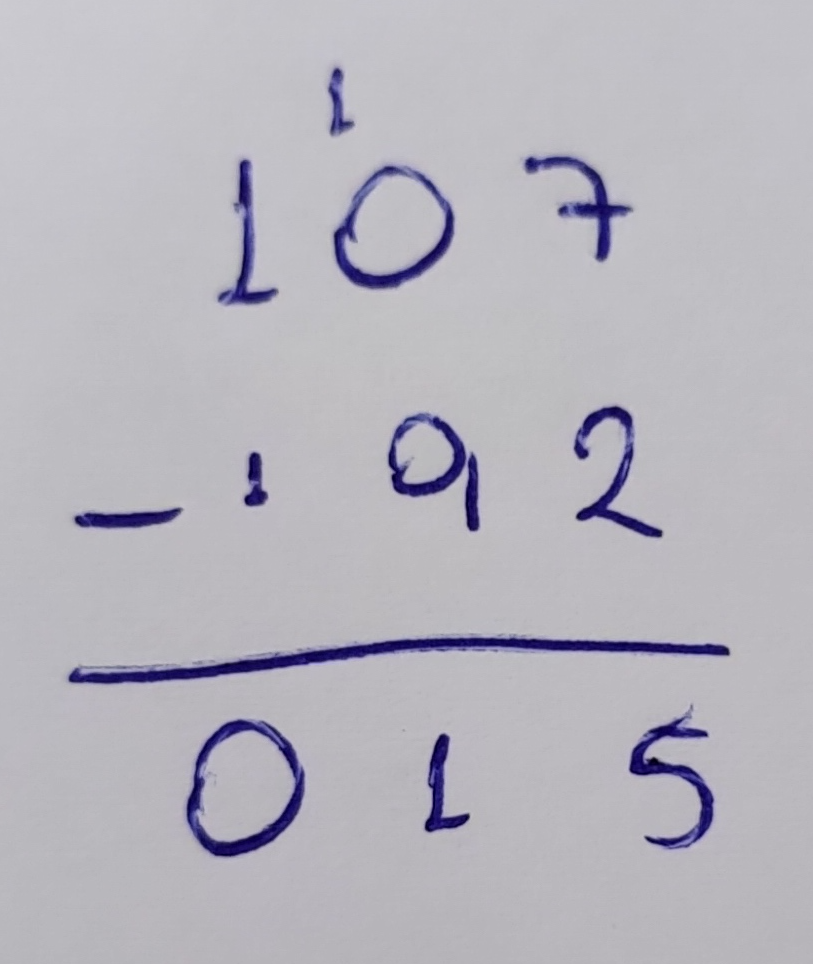 1
107
- 1 92
015